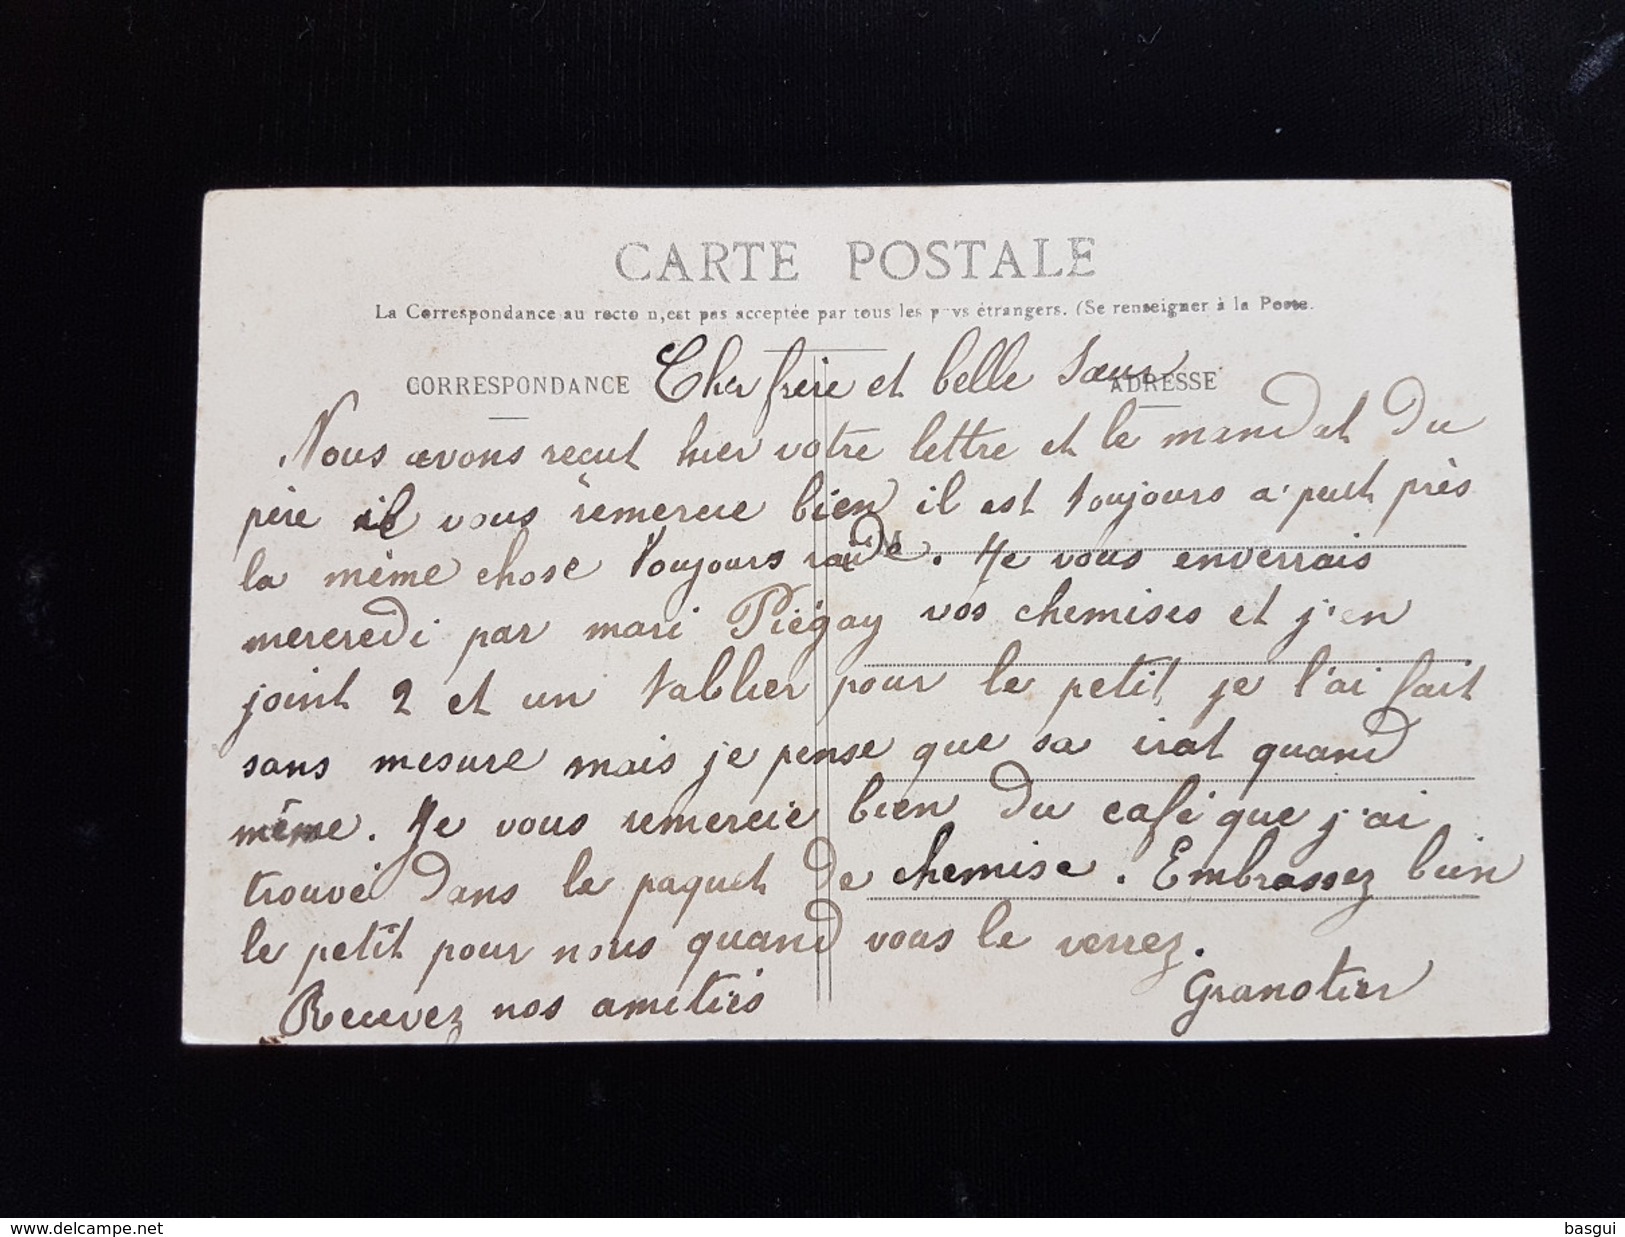 CARTE POSTALE
La Correspondance au recto n,est pas acceptée par tous les pays étrangers. (Se renseigner à la Poste.
CORRESPONDANCE
ADRESSE
Cher frère et belle Sœur
Nous avons recut hier votre lettre et le mandat du
père il vous remercie bien il est toujours a peut près
la même chose toujours raide. Je vous enverrais
mercredi par mari Piégay vos chemises et j'en
joint 2 et un tablier pour le petit je l'ai fait
sans mesure mais je pense que sa irat quand
même. Je vous remercie bien du café que j'ai
trouvé dans le paquet de chemise. Embrassez bien
le petit pour nous quand vous le verrez.
Recevez nos amitiés
Granotier
delcampe.net
basgui